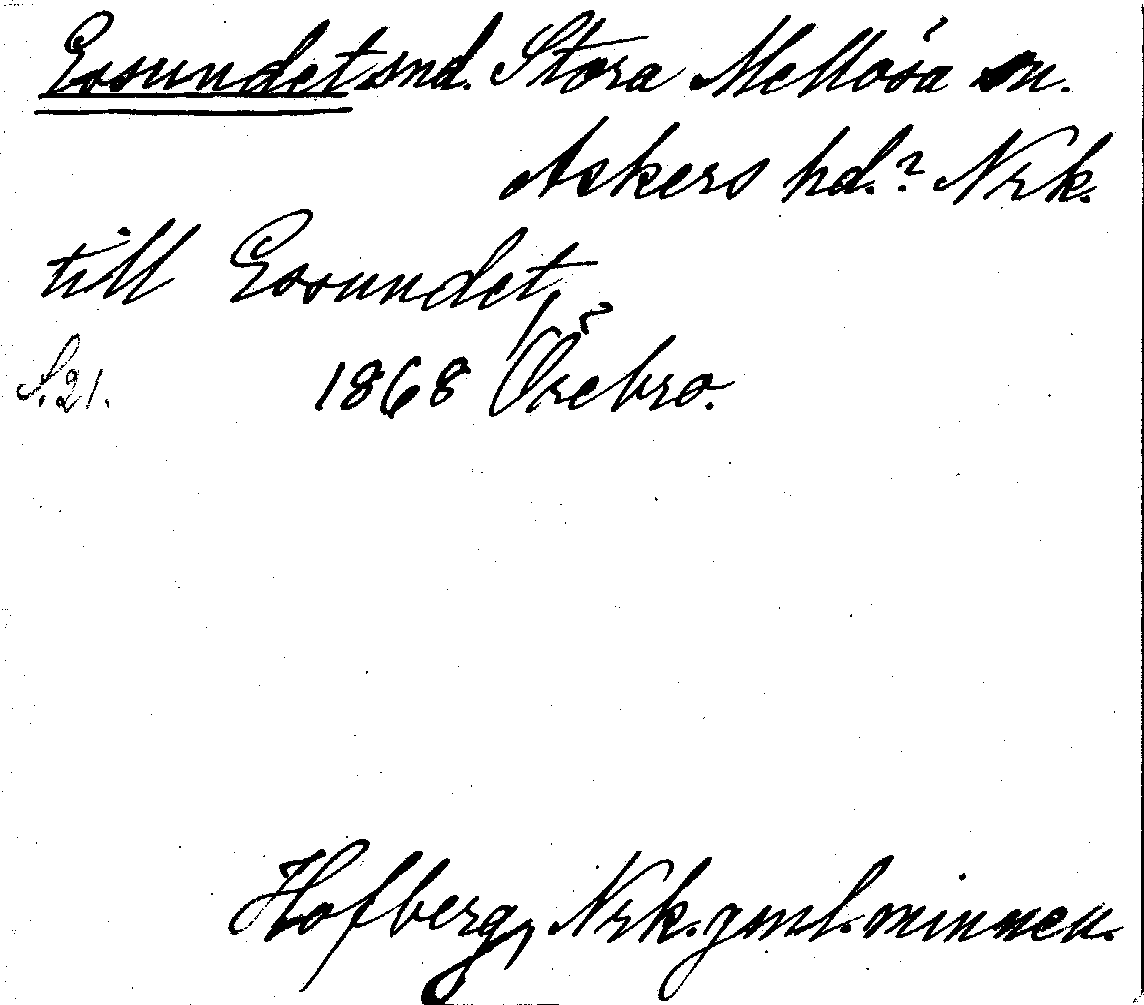 Essundet snd. Stora Mellösa sn.
Askers hd.? Nrk.
till Essundet,
S. 21. 1868 Örebro.
Hofberg, Nrk. gml. minnen.